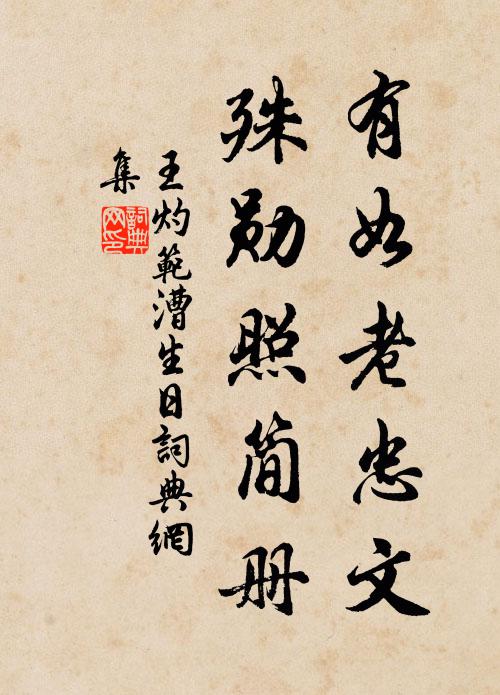 有如老忠文
殊勋照简册
王灼範漕生日詞典網
集
詞典
网印